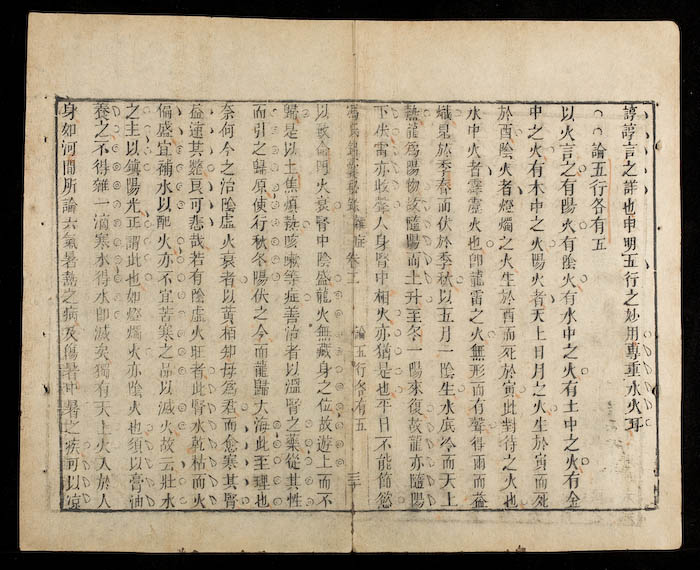 諄諄言之詳也申明五行之妙用專重水火耳
論五行各有五
以火言之有陽火有陰火有水中之火有土中之火有金
中之火有木中之火陽火者天上日月之火生於寅而死
於酉陰火者燈燭之火生於酉而死於寅此對待之火也
水中火者霹靂火也卽龍雷之火無形而有聲得雨而益
熾見於季春而伏於季秋以五月一陰生水底冷而天上
熱龍爲陽物故隨陽而上升至冬一陽來復故龍亦隨陽
下伏雷亦收聲人身腎中相火亦猶是也平日不能節慾
馮氏錦囊秘錄 雜症 卷 論五行各有五 三
以致命門火衰腎中陰盛龍火無藏身之位故遊上而不
歸是以上焦煩熱咳嗽等症善治者以溫腎之藥從其性
而引之歸原使行秋冬陽伏之令而龍歸大海此至理也
奈何今之治陰虛火衰者以黃柏知母爲君而愈寒其腎
益速其斃良可悲哉若有陰虛火旺者此腎水乾枯而火
偏盛宜補水以配火亦不宜苦寒之品以滅火故云壯水
之主以鎮陽光正謂此也如燈燭火亦陰火也須以膏油
養之不得雜一滴寒水得水卽滅矣獨有天上火入於人
身如河間所論六氣暑熱之病及傷暑中暑之疾可以凉